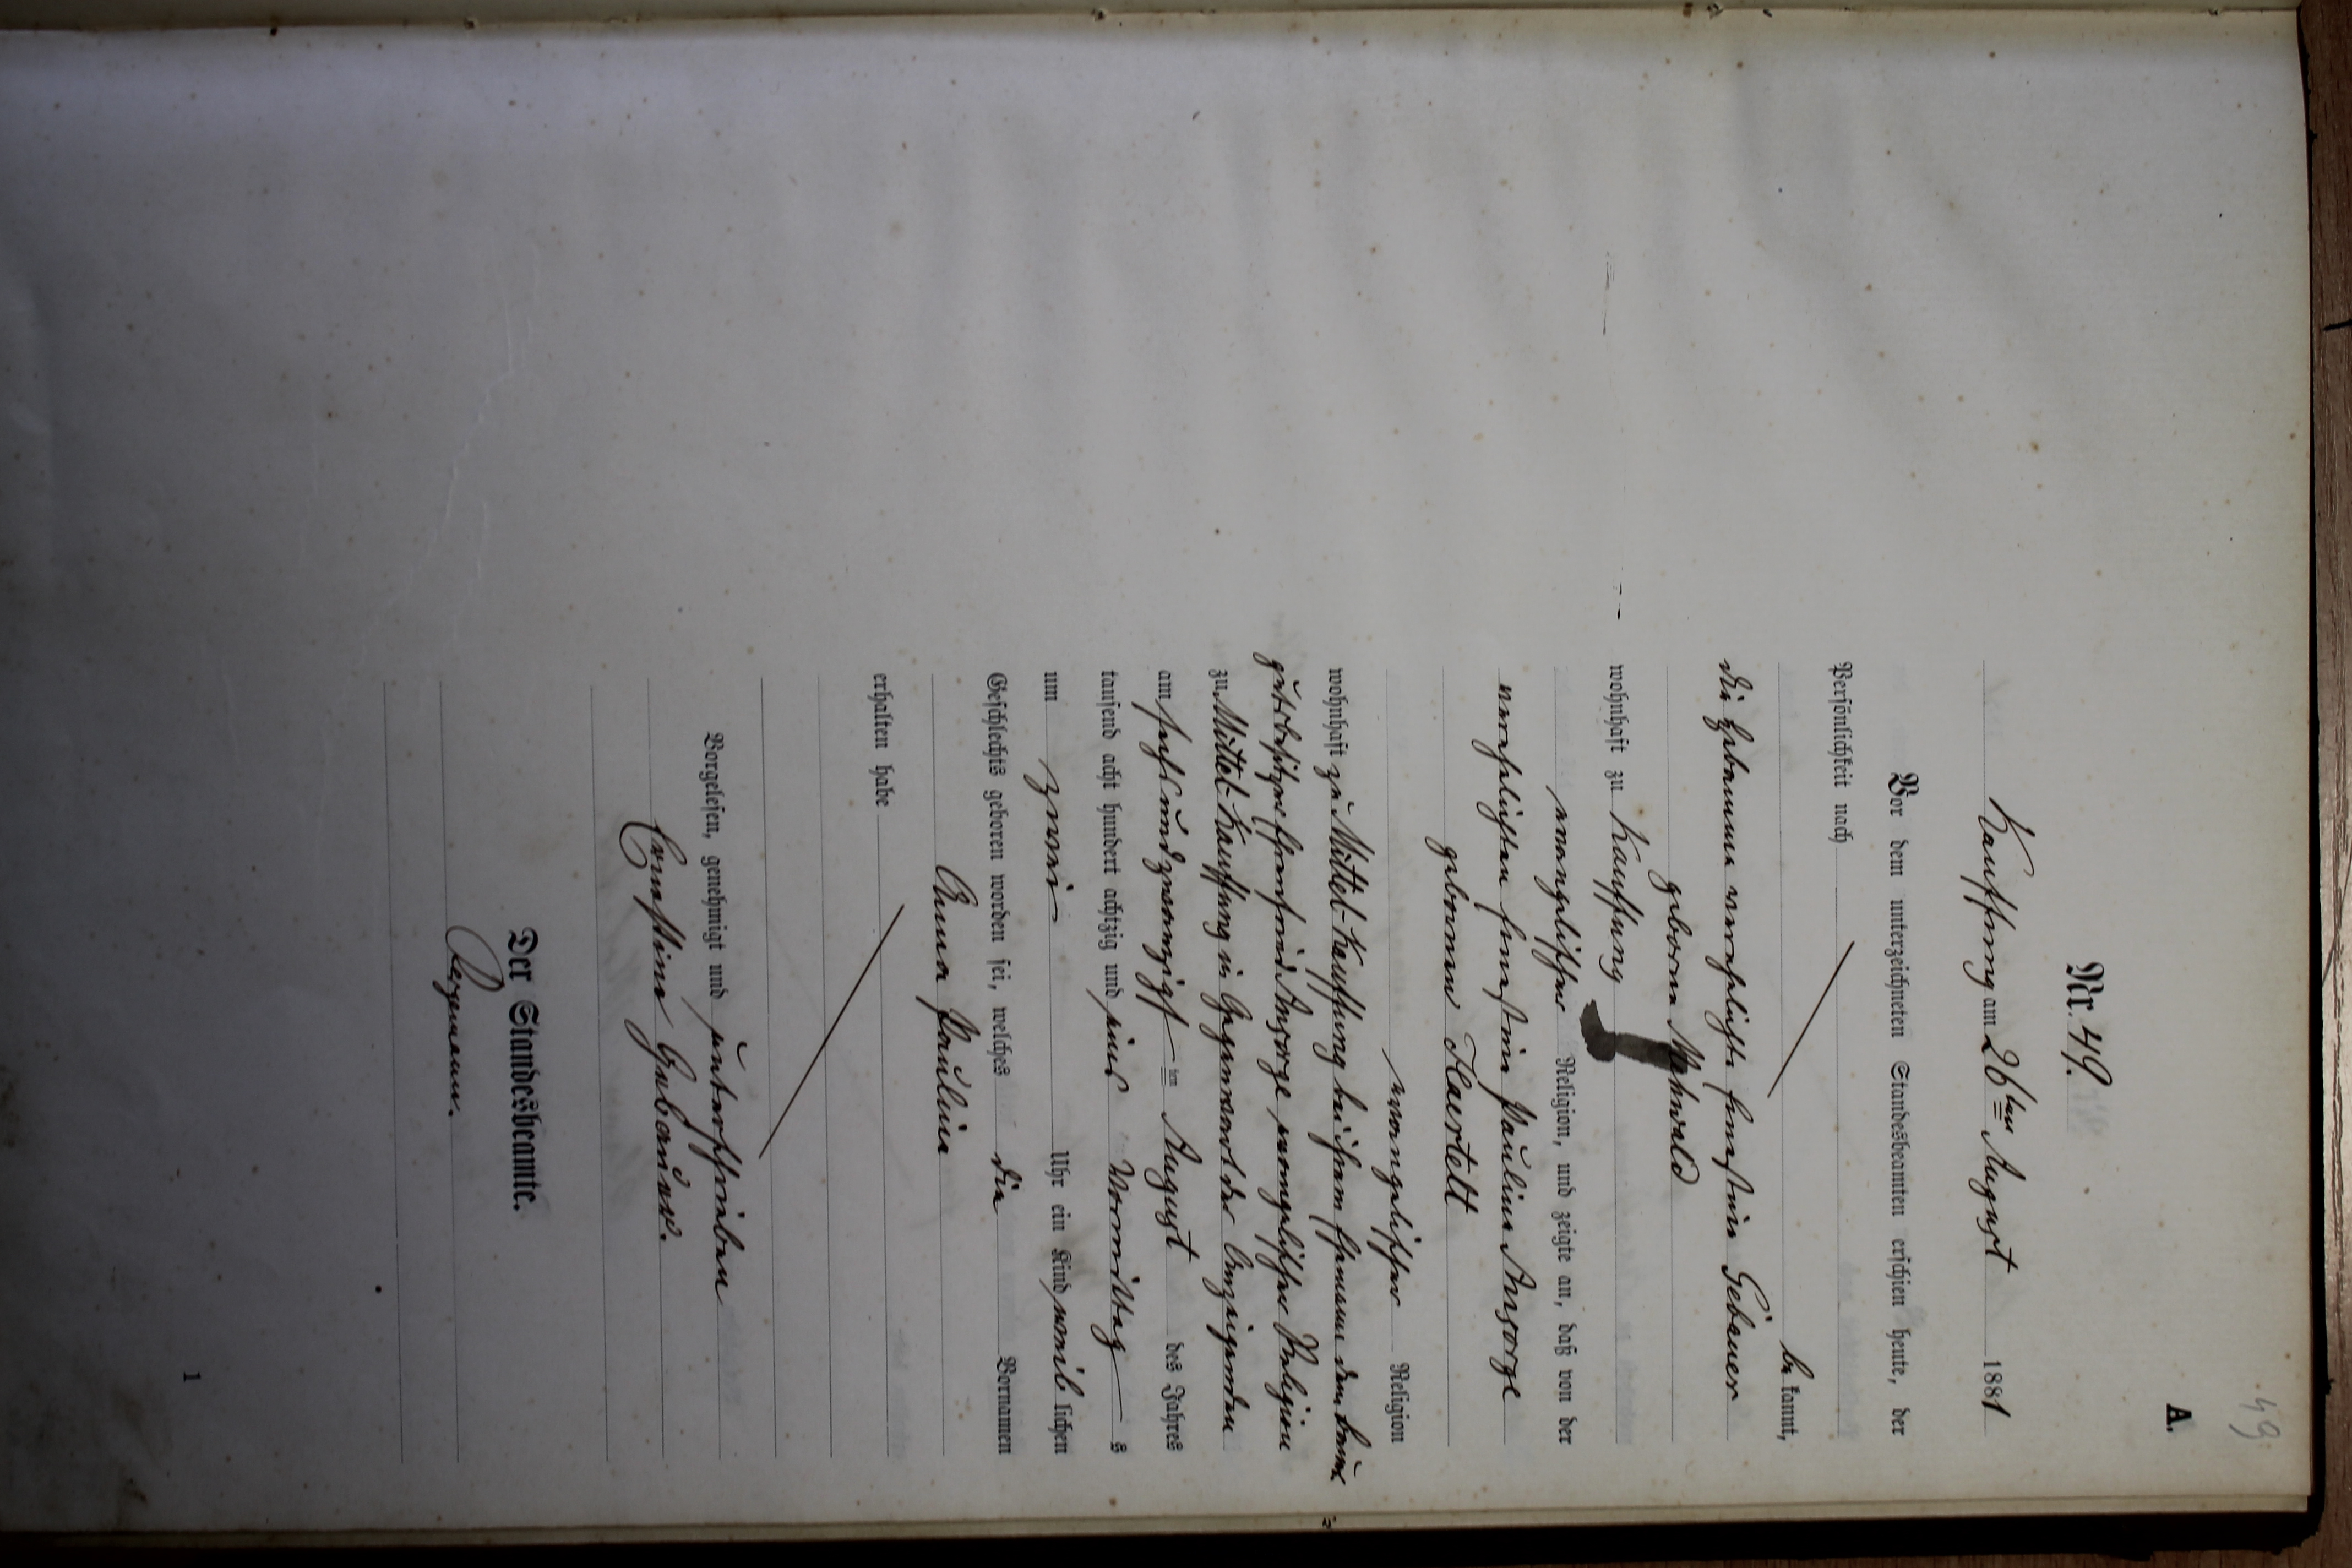 49
A.
Nr. 49.
Kauffung am 26ten August 1881
Vor dem unterzeichneten Standesbeamten erschien heute, der
Persönlichkeit nach
be kannt,
die Hebamme verehelichte Ernstine Gebauer
geborne Mehwald
wohnhaft zu Kauffung
evangelischer Religion, und zeigte an, daß von der
verehelichten Ernestine Pauline Ansorge
gebornen Haertelt
evangelischer Religion
wohnhaft zu Mittel-Kauffung bei ihrem Ehemann dem Bauer
gutsbesitzer Ehrenfried Ansorge, evangelischer Religion
zu Mittel-Kauffung in Gegenwart der Anzeigenden
am sechsundzwanzigsten August des Jahres
tausend acht hundert achtzig und eins Vormittags
um zwei Uhr ein Kind weiblichen
Geschlechts geboren worden sei, welches die Vornamen
Anna Pauline
erhalten habe
Vorgelesen, genehmigt und unterschrieben
Ernestine Gebauer.
Der Standesbeamte.
1